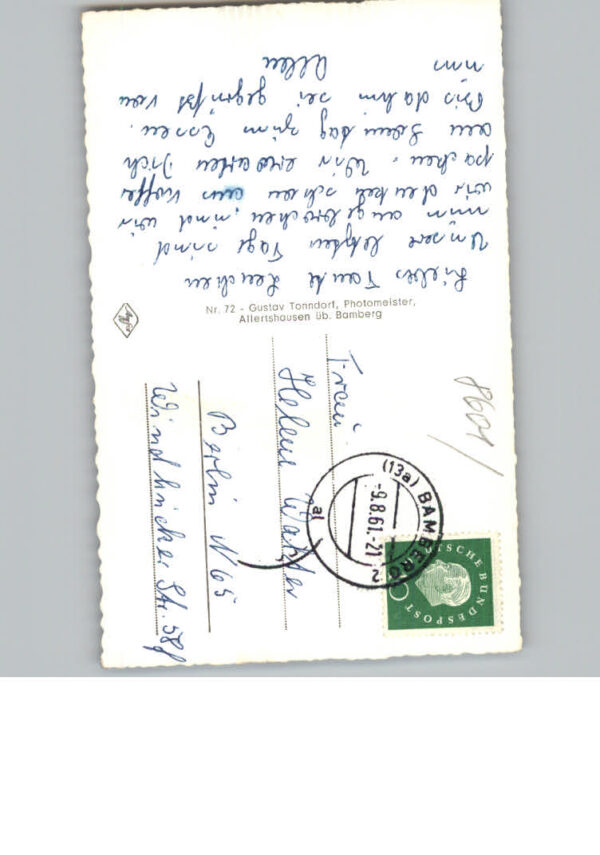 Liebes Tante Lenchen
Unsere letzten Tage sind
nun angebrochen, und wir
wir denken schon ans Koffer
packen. Wir erwarten Dich
am Sonntag zum Essen.
Bis dahin sei gegrüßt von
uns Allen
Nr. 72 - Gustav Tonndorf, Photomeister,
Allertshausen üb. Bamberg
Agfa
8601
Frau
Helene Walter
Berlin N 65
Str. 58
(13a) BAMBERG 2
-9.8.61.-21
a
DEUTSCHE BUNDESPOST